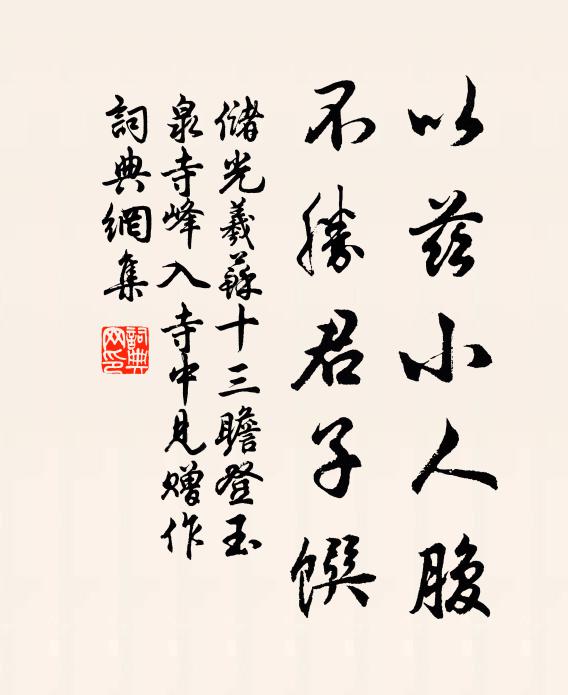 以兹小人腹
不勝君子饌
儲光羲蘇十三瞻登玉
泉寺峰入寺中見贈作
詞典網集
詞典網印